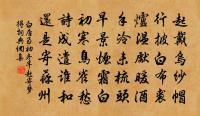 起戴烏紗帽
行披白布裘
爐溫先暖酒
手冷未梳頭
早景煙霜白
初寒鳥雀愁
詩成遣誰和
還是寄蘇州
白居易初冬早起寄夢
得詞典網集